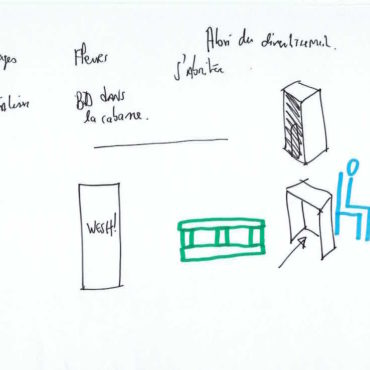 Fleurs
Abri du divertissement.
S'abriter
BD dans
la cabane.
WESH!